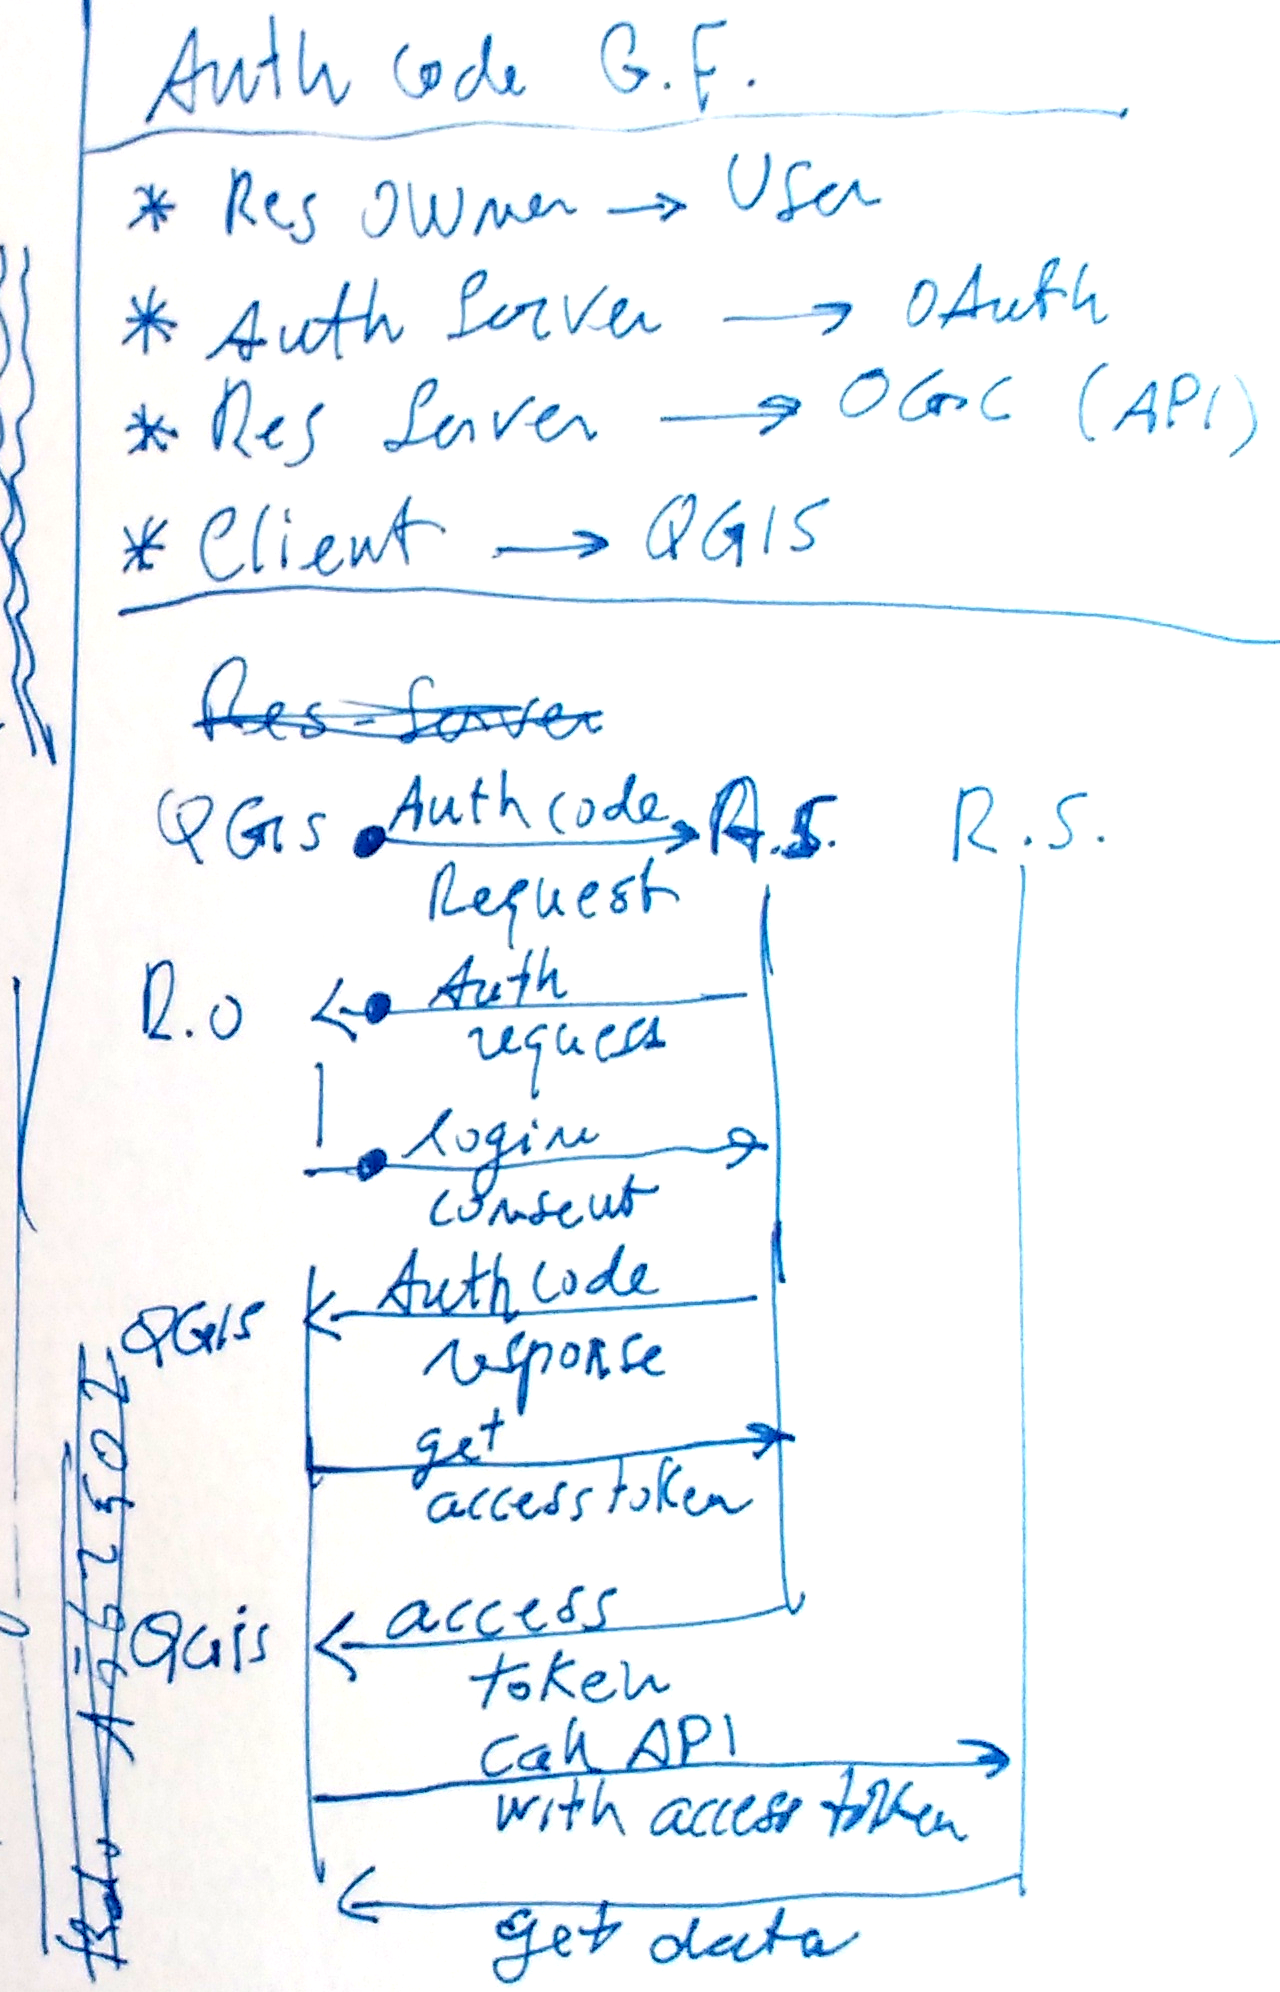 Auth Code G.F.
* Res Owner → User
* Auth Server → OAuth
* Res Server → OGC (API)
* Client → QGIS
Res-Server
QGIS Auth code A.S. R.S.
Request
R.O Auth
request
login
consent
Auth code
QGIS
response
get
access token
access
QGis
token
call API
with access token
get data